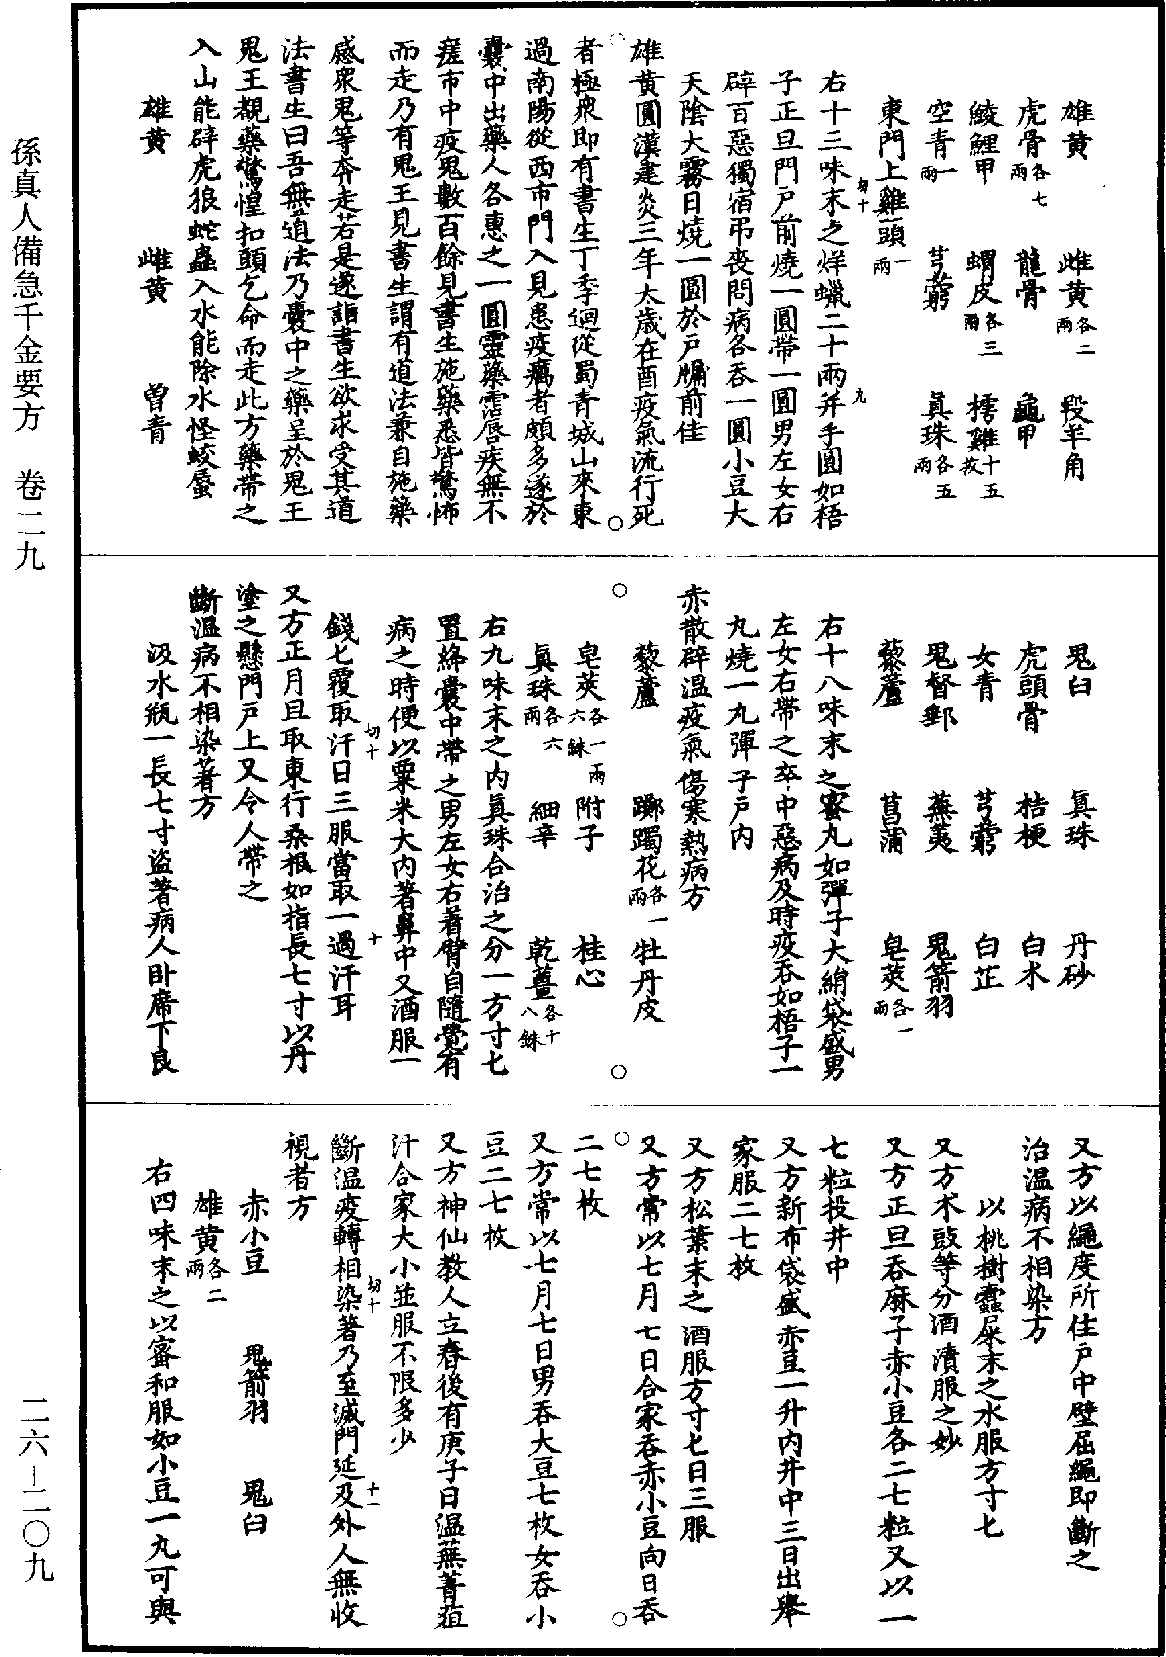 係真人備急千金要方 卷二九
二六-二〇九
雄黄 雌黄各二兩 羖羊角
虎骨各七兩 龍骨 龜甲
綾鯉甲 蝟皮各三兩 樗雞十五枚
空青一兩 芎藭 真珠各五兩
東門上雞頭一兩
右十三味末之烊蠟二十兩并手圓如梧
子正旦門戶前燒一圓帶一圓男左女右
辟百惡獨宿弔喪問病各吞一圓小豆大
天陰大霧日燒一圓於戶牖前佳
雄黄圓漢建炎三年太歲在酉疫氣流行死
者極衆即有書生丁季迴從蜀青城山來東
過南陽從西市門入見患疫癘者頗多遂於
囊中出藥人各惠之一圓靈藥霑唇疾無不
瘥市中疫鬼數百餘見書生施藥悉皆驚怖
而走乃有鬼王見書生謂有道法兼自施藥
感衆鬼等奔走若是遂詣書生欲求受其道
法書生曰吾無道法乃囊中之藥呈於鬼王
鬼王覩藥驚惶扣頭乞命而走此方藥帶之
入山能辟虎狼蛇蟲入水能除水怪蛟蜃
雄黄 雌黄 曾青
鬼臼 真珠 丹砂
虎頭骨 桔梗 白朮
女青 芎藭 白芷
鬼督郵 蕪荑 鬼箭羽
藜蘆 菖蒲 皂莢各一兩
右十八味末之蜜丸如彈子大絹袋盛男
左女右帶之卒中惡病及時疫吞如梧子一
丸燒一丸彈子戶内
赤散辟温疫氣傷寒熱病方
藜蘆 躑躅花各一兩 牡丹皮
皂莢各一兩六銖 附子 桂心
真珠各六兩 細辛 乾薑各十八銖
右九味末之内真珠合治之分一方寸匕
置絳囊中帶之男左女右著臂自隨覺有
病之時便以粟米大内著鼻中又酒服一
錢匕覆取汗日三服當取一過汗耳
又方正月旦取東行桑根如指長七寸以丹
塗之懸門戶上又令人帶之
斷温病不相染著方
汲水瓶一長七寸盜著病人卧席下良
又方以繩度所住戶中壁屈繩即斷之
治温病不相染方
以桃樹蠹屎末之水服方寸匕
又方朮豉等分酒漬服之妙
又方正旦吞麻子赤小豆各二七粒又以一
七粒投井中
又方新布袋盛赤豆一升内井中三日出舉
家服二七枚
又方松葉末之酒服方寸匕日三服
又方常以七月七日合家吞赤小豆向日吞
二七枚
又方常以七月七日男吞大豆七枚女吞小
豆二七枚
又方神仙教人立春後有庚子日温蕪菁葅
汁合家大小並服不限多少
斷温疫轉相染著乃至滅門延及外人無收
視者方
赤小豆 鬼箭羽 鬼臼
雄黄各二兩
右四味末之以蜜和服如小豆一丸可與